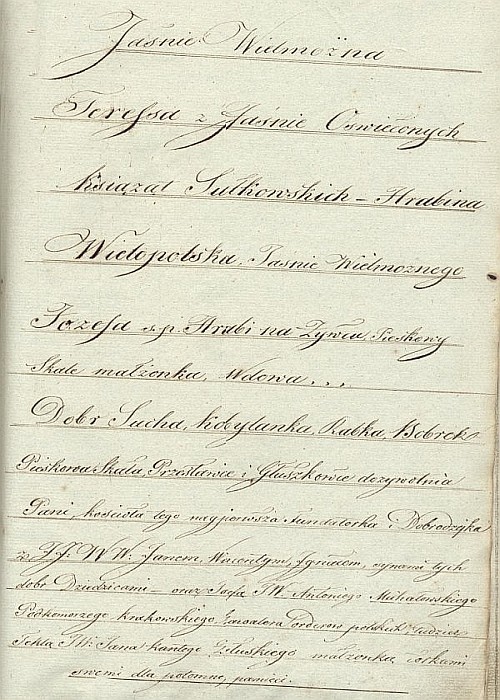 Jaśnie Wielmożna
Teressa z Jaśnie Oswieconych
Książat Sułkowskich – Hrabina
Wielopolska, Jasnie Wielmoznego
Jozefa s.p. Hrabi na Zywcu, Pieskowy
Skale małzonka, Wdowa...
Dobr Sucha, Kobylanka, Rabka, Bobrek
Pieskowa Skała, Przesławice i Głuszkowie dozywotnia
Pani, kościoła tego naypierwsza Fundatorka i Dobrodziyka
z JJ. WW: Janem, Wincentym, Ignacem, synami tych
dobr Dziedzicami – oraz Zofią JW. Antoniego Michałowskiego
Podkomorzego krakowskiego kawalera orderow polskich, tudziez
Teklą JW: Jana Kantego Załuskiego małzonka, corkami
swemi dla potomney pamieci.